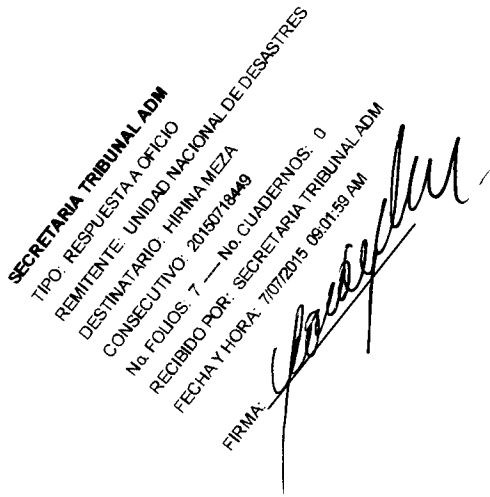 SECRETARIA TRIBUNAL ADM
TIPO: RESPUESTA A OFICIO
REMITENTE: UNIDAD NACIONAL DE DESASTRES
DESTINATARIO: HIRINA MEZA
CONSECUTIVO: 20150718449
No. FOLIOS: 7 — No. CUADERNOS: 0
RECIBIDO POR: SECRETARIA TRIBUNAL ADM
FECHA Y HORA: 7/07/2015 09:01:59 AM
FIRMA: